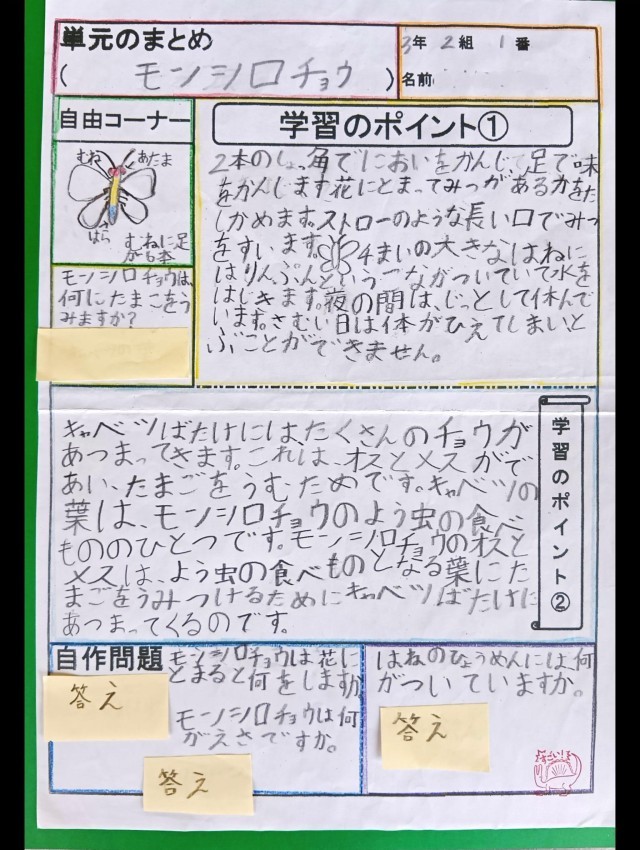 単元のまとめ
(モンシロチョウ)
3年 2組 1番
名前
自由コーナー
むね
あたま
はら
むねに足
が6本
モンシロチョウは、
何にたまごをう
みますか?
学習のポイント①
2本のしょっ角でにおいをかんじて足で味
をかんじます花にとまってみつがある力をた
しかめます。ストローのような長い口でみつ
をすいます。4まいの大きなはねに
はりん、ぷんという
ながついていて水を
はじきます。夜の間は、じっとして休んで
います。さむい日は体がひえてしまいと
ぶことができません。
学習のポイント②
キャベツばたけには、たくさんのチョウが
あつまってきます。これは、オスとメスがで
あい、たまごをうむためです。キャベツの
葉は、モンシロチョウのよう虫の食べ
もののひとつです。モンシロチョウのオスと
メスは、よう虫の食べものとなる葉にた
まごをうみつけるためにキャベツばたけに
あつまってくるのです。
自作問題
モンシロチョウは花に
とまると何をしますか
答え
モンシロチョウは何
がえさですか。
答え
はねのひょうめんには、何
がついていますか。
答え